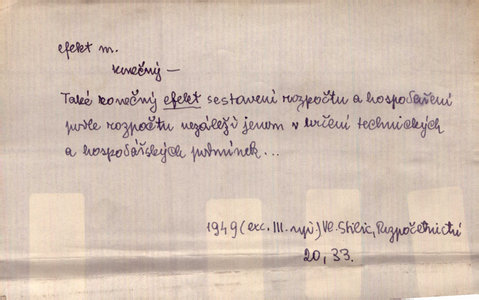 efekt m.
konečný —
Také konečný efekt sestavení rozpočtu a hospodaření
podle rozpočtu nezáleží jenom v určení technických
a hospodářských podmínek...
1949 (exc. III. vyd.) Vl. Rozpočetnictví
20, 33.